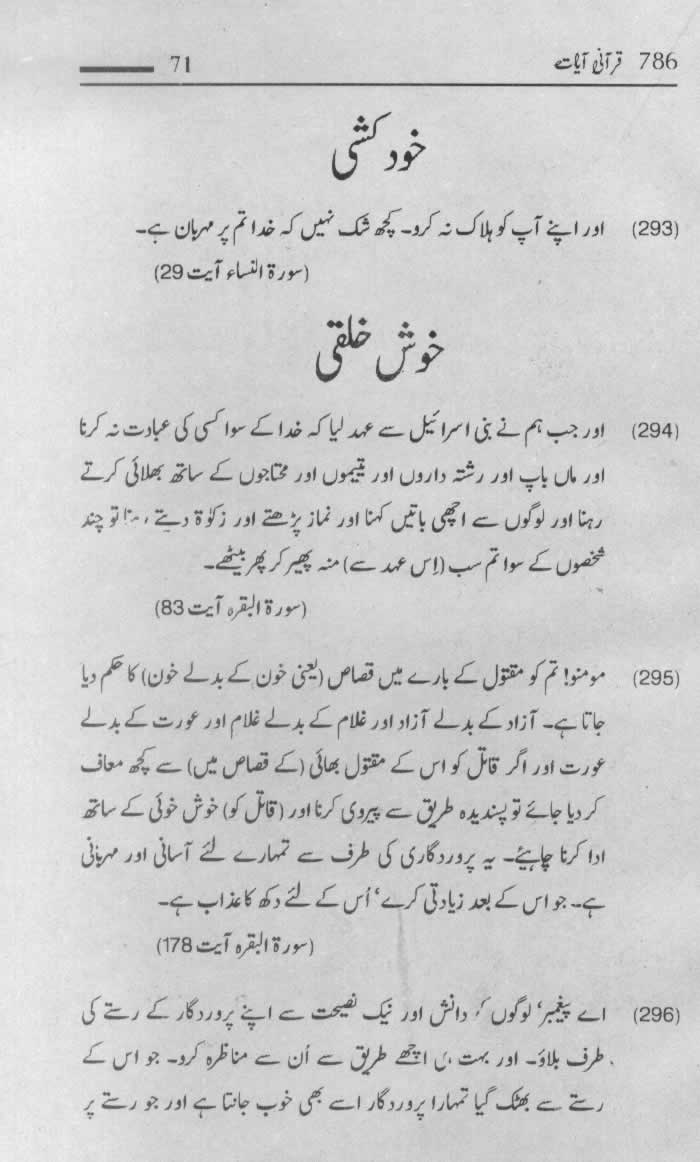 786 قرآنی آیات 71
خودکشی
(293) اور اپنے آپ کو ہلاک نہ کرو۔ کچھ شک نہیں کہ خدا تم پر مہربان ہے۔
(سورۃ النساء آیت 29)
خوش خلقی
(294) اور جب ہم نے بنی اسرائیل سے عہد لیا کہ خدا کے سوا کسی کی عبادت نہ کرنا
اور ماں باپ اور رشتہ داروں اور یتیموں اور محتاجوں کے ساتھ بھلائی کرتے
رہنا اور لوگوں سے اچھی باتیں کہنا اور نماز پڑھتے اور زکوٰۃ دیتے تو چند
شخصوں کے سوا تم سب (اِس عہد سے) منہ پھیر کر پھر بیٹھے۔
(سورۃ البقرہ آیت 83)
(295) مومنو! تم کو مقتول کے بارے میں قصاص (یعنی خون کے بدلے خون) کا حکم دیا
جاتا ہے۔ آزاد کے بدلے آزاد اور غلام کے بدلے غلام اور عورت کے بدلے
عورت اور اگر قاتل کو اس کے مقتول بھائی (کے قصاص میں) سے کچھ معاف
کر دیا جائے تو پسندیدہ طریق سے پیروی کرنا اور (قاتل کو) خوش خوئی کے ساتھ
ادا کرنا چاہیئے۔ یہ پروردگاری کی طرف سے تمہارے لئے آسانی اور مہربانی
ہے۔ جو اس کے بعد زیادتی کرے‘ اُس کے لئے دکھ کا عذاب ہے۔
(سورۃ البقرہ آیت 178)
(296) اے پیغمبر‘ لوگوں دانش اور نیک نصیحت سے اپنے پروردگار کے رستے کی
طرف بلاؤ۔ اور بہت اچھے طریق سے اُن سے مناظرہ کرو۔ جو اس کے
رستے سے بھٹک گیا تمہارا پروردگار اسے بھی خوب جانتا ہے اور جو رستے پر